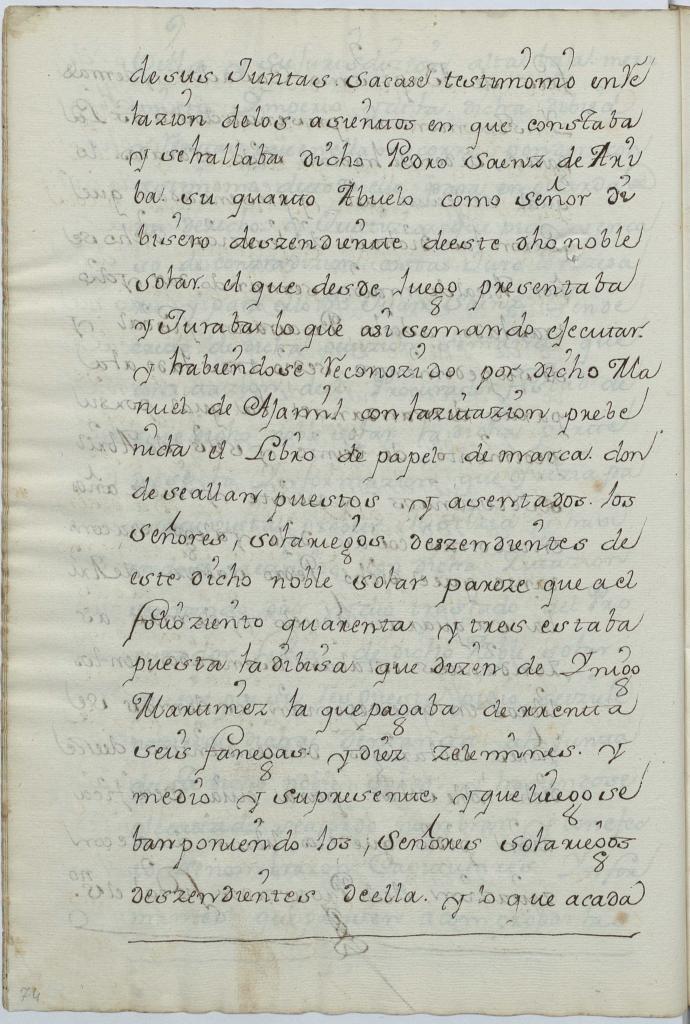 de sus Juntas sacase testimonio en Re
lazion de los asientos en que constaba
y se hallaba dicho Pedro Saenz de Arri
ba su quarto Abuelo como señor Di
bisero deszendiente de este dho noble
solar el que desde luego presentaba
y Juraba lo que asi se mando ejecutar.
y habiendose Reconozido por dicho Ma
nuel de Ajamil con la zitazion prebe
nida el Libro de papel de marca. don
de se allan puestos y asentados. los
señores, solariegos deszendientes de
este dicho noble solar pareze que a el
folio ziento quarenta y tres estaba
puesta la dibisa que dizen de Ynigo
Martinez la que pagaba de rrenta
seis fanegas. y diez zelemines. y
medio y su presente y que luego se
ban poniendo los, señores solariegos
deszendientes de ella. y lo que a cada
74